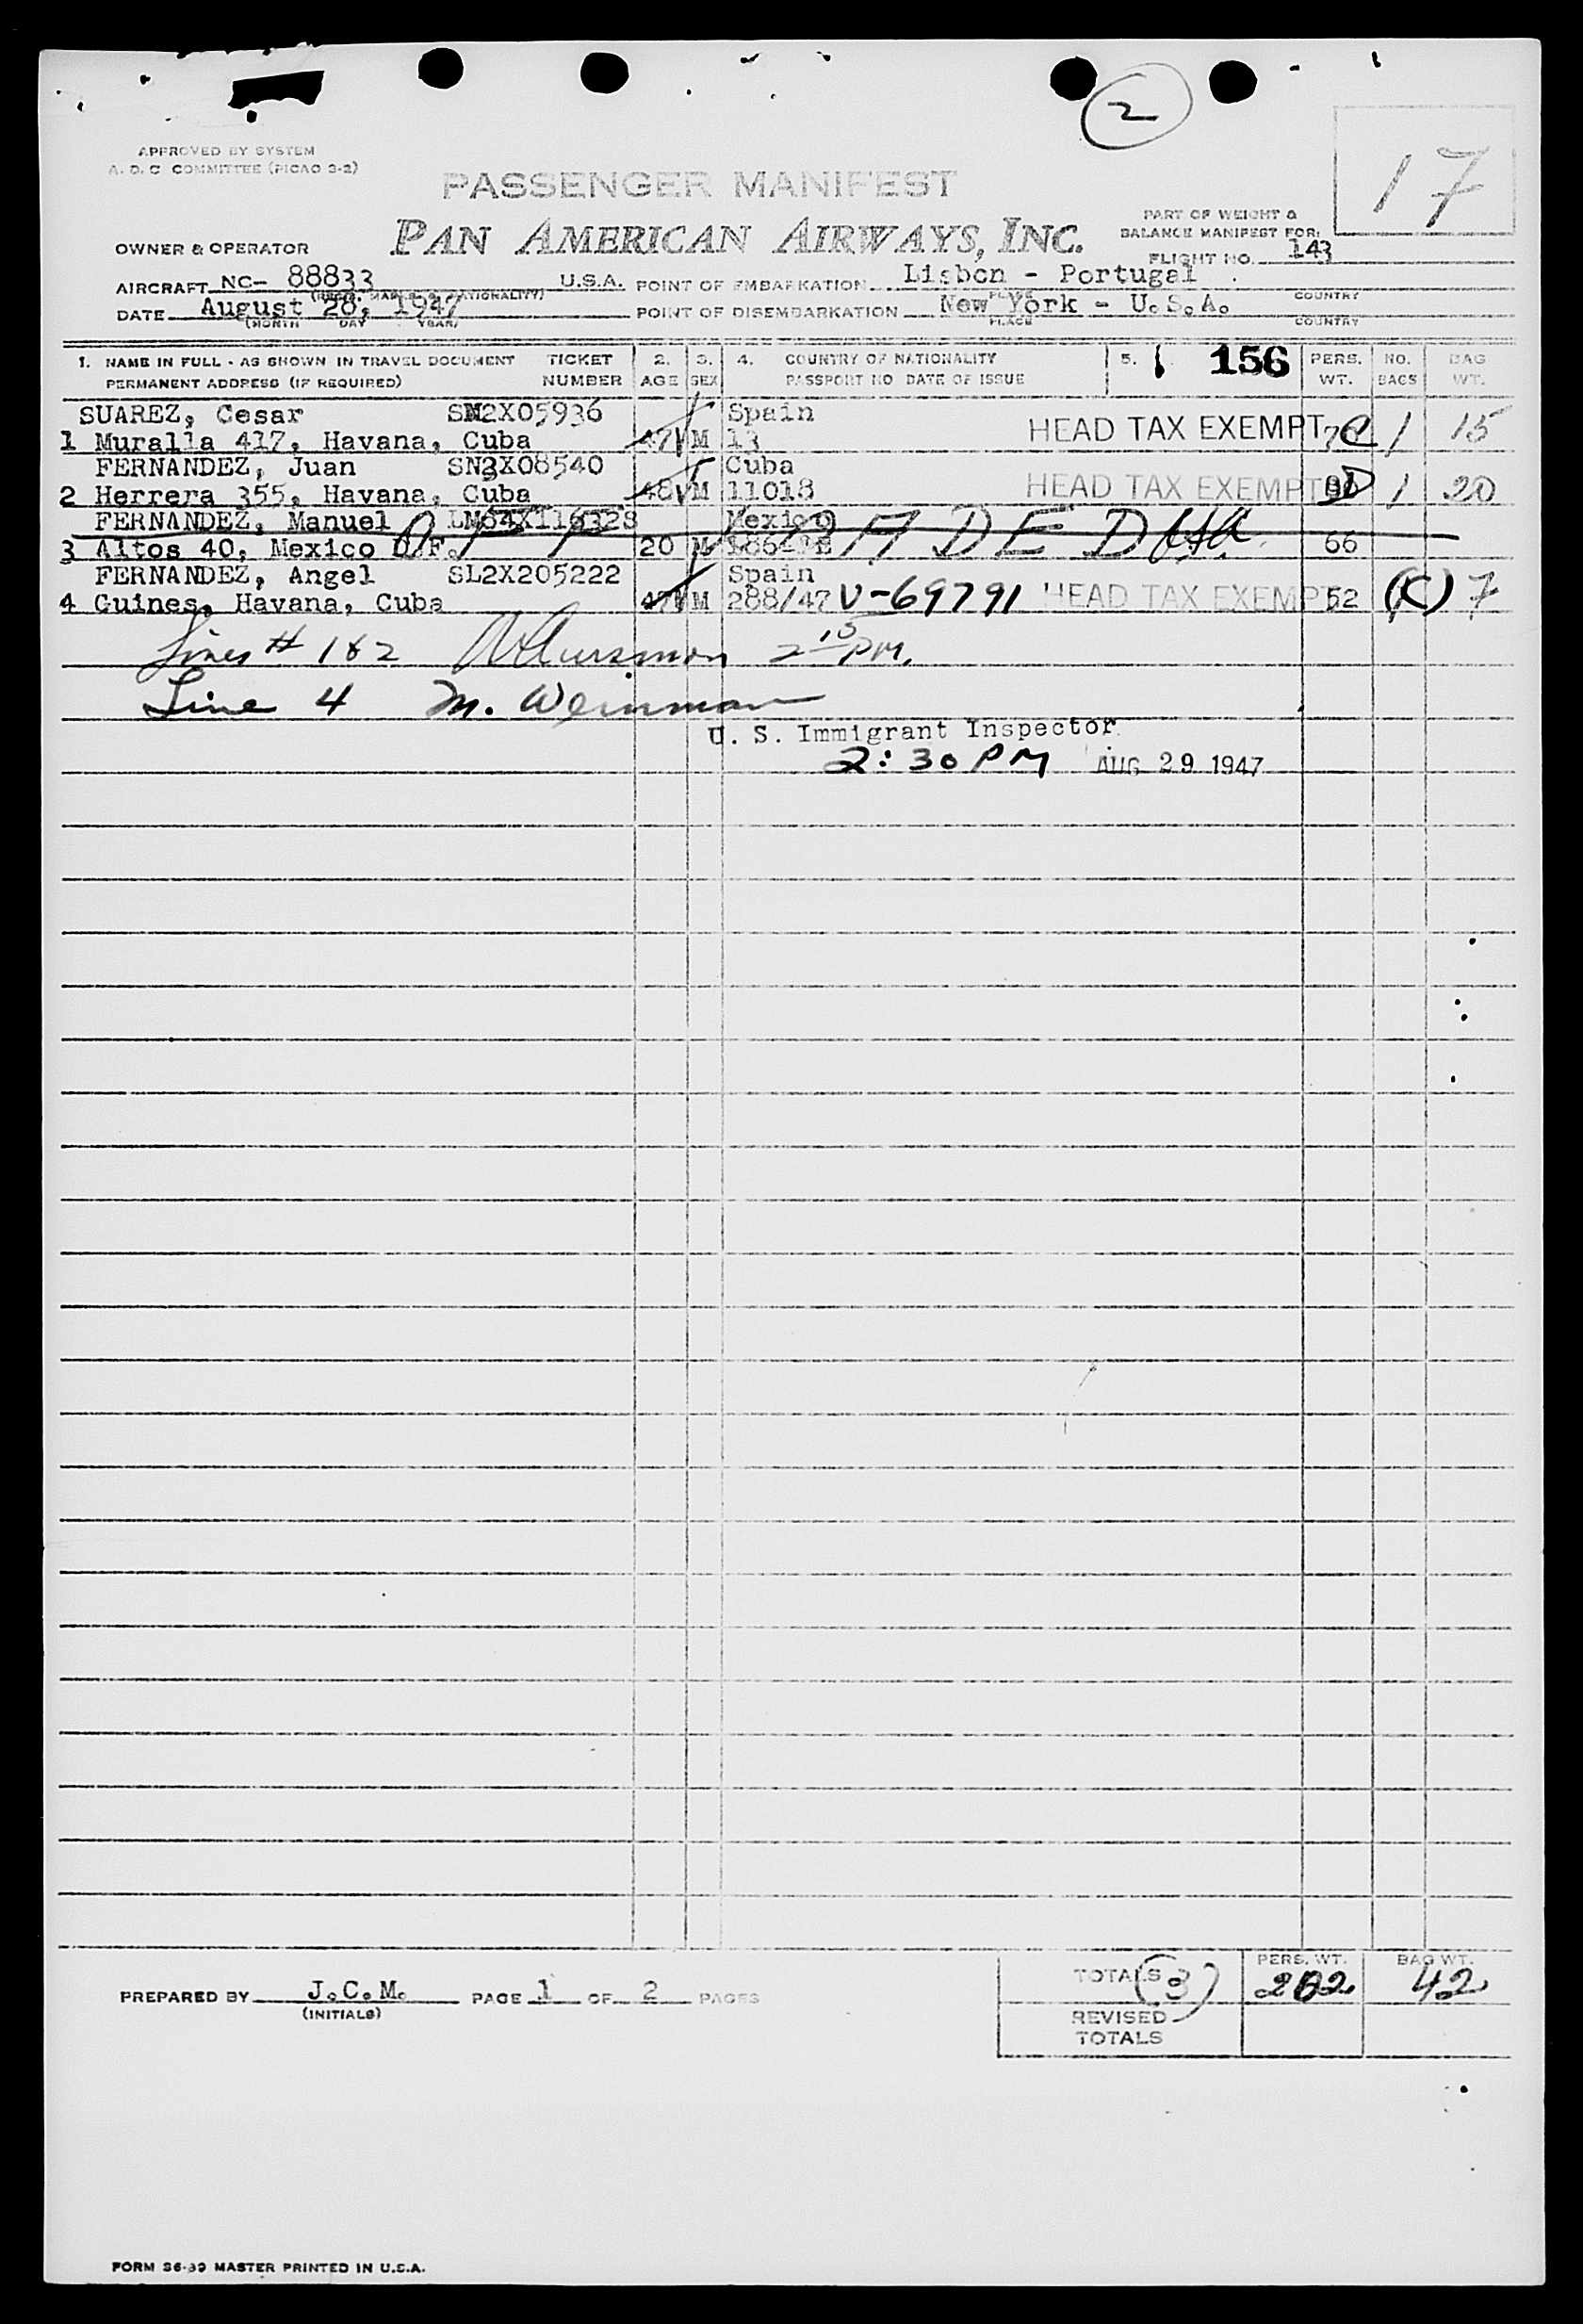 2
17
APPROVED BY SYSTEM
A. D. C COMMITTEE (PICAO 3-2)
PASSENGER MANIFEST
PAN AMERICAN AIRWAYS, INC.
PART OF WEIGHT &
BALANCE MANIFEST FOR:
FLIGHT NO. 143
OWNER & OPERATOR
AIRCRAFT NC- 88833 U.S.A. POINT OF EMBARKATION Lisbon - Portugal
PLACE COUNTRY
DATE August 28, 1947 POINT OF DISEMBARKATION New York - U.S.A.
(MONTH DAY YEAR) PLACE COUNTRY
1. NAME IN FULL - AS SHOWN IN TRAVEL DOCUMENT TICKET 2. 3. 4. COUNTRY OF NATIONALITY 5. 156 PERS. NO. BAG
PERMANENT ADDRESS (IF REQUIRED) NUMBER AGE SEX PASSPORT NO DATE OF ISSUE WT. BAGS WT.
SUAREZ, Cesar 2X05936 Spain
1 Muralla 417, Havana, Cuba 47 M 13 HEAD TAX EXEMPT 1 15
FERNANDEZ, Juan SN3X08540 Cuba
2 Herrera 355, Havana, Cuba 48 M 11018 HEAD TAX EXEMPT 1 20
FERNANDEZ, Manuel Mexico
3 Altos 40, Mexico D.F. 20 M 66
FERNANDEZ, Angel SL2X205222 Spain
4 Guines, Havana, Cuba 47 M 288/47 V-69791 HEAD TAX EXEMPT 52 7
Lines # 1&2 2 15 PM.
Line 4 M. Weinman
U. S. Immigrant Inspector
2:30 PM AUG 29 1947
PREPARED BY J.C.M. PAGE 1 OF 2 PAGES
(INITIALS)
TOTALS (3) PERS. WT. 202 BAG WT. 42
REVISED
TOTALS
FORM 36-39 MASTER PRINTED IN U.S.A.